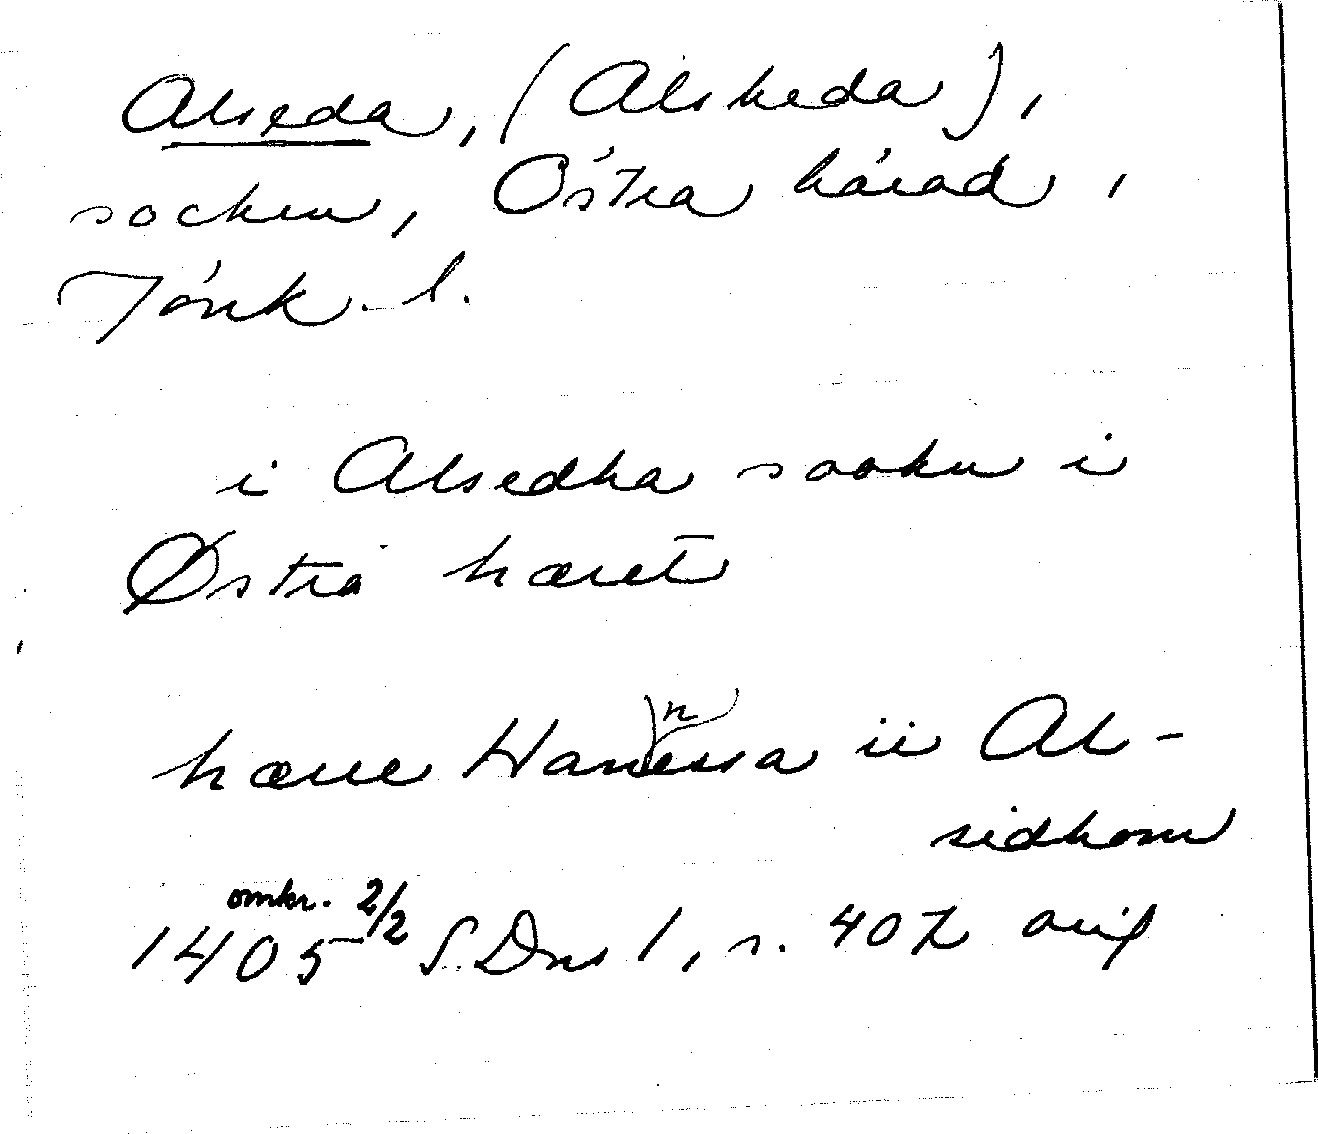 Alseda, (Alskeda),
socken, Östra härad,
Jönk. l.
i Alsedha sookn i
Østra hæret
hærre Hannessa ii Al-
sidhom
omkr. 2/2
1405 SDns 1, s. 407 orig